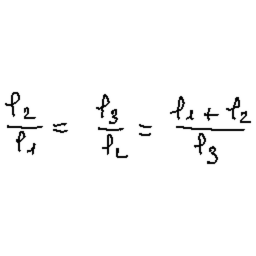 \frac{\rho_2}{\rho_1} = \frac{\rho_3}{\rho_2} = \frac{\rho_1 + \rho_2}{\rho_3}